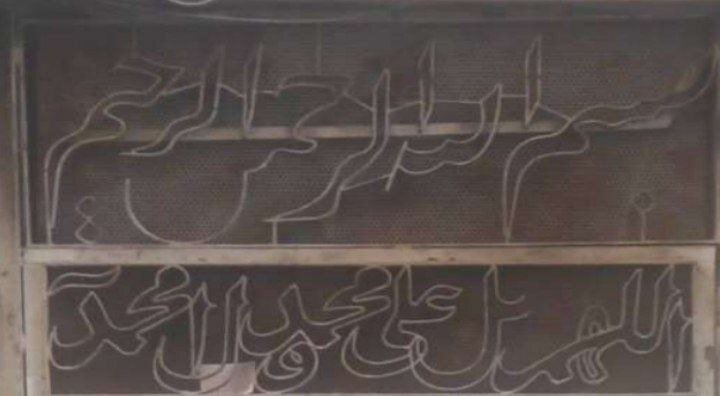 بسم الله الرحمن الرحیم
اللهم صل علی محمد و آل محمد